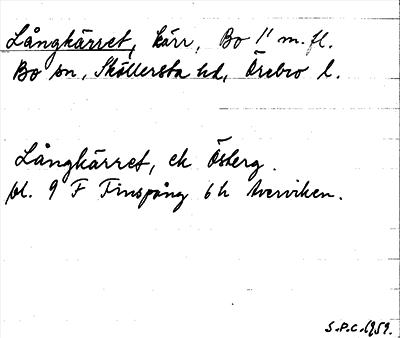 Långkärret, kärr, Bo 1" m. fl.
Bo sn, Sköllersta hd, Örebro l.
Långkärret, ek Österg.
bl. 9 F Finspång 6 h Averviken.
S.P.C. 1959.